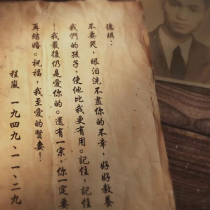 德琪：
不要哭，眼泪洗不盡你的不幸，好好教養
我們的孩子，使他比我更有用。記住，記住
我最後仍是愛你的。還有一宗，你一定要
再結婚。祝福，我至愛的賢妻！
程嵐
一九四九、一一、二九